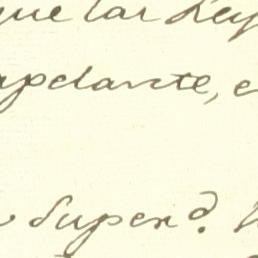 que las Ley
apelante, e
Super.ᵈ